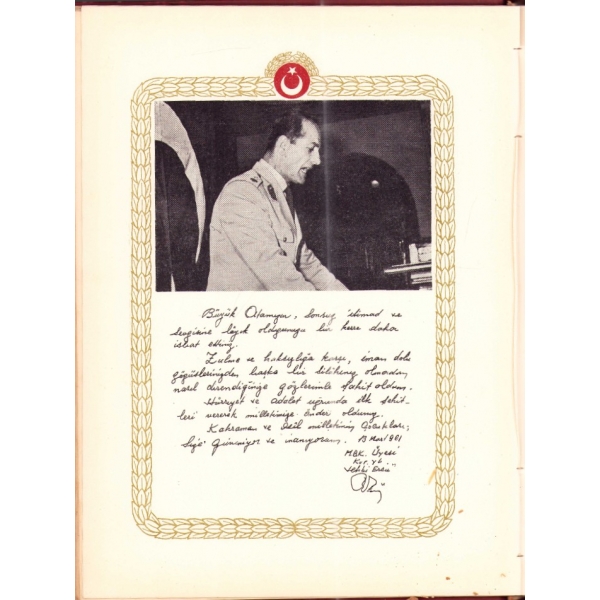 Büyük Atamızın, sonsuz itimad ve
sevgisine lâyık olduğunuzu bir kere daha
isbat ettiniz.
Zulme ve haksızlığa karşı, iman dolu
göğüslerinizden başka bir silâhınız olmadan
nasıl direndiğinize gözlerimle şahit oldum.
Hürriyet ve adalet uğrunda ilk şehit-
leri vererek milletimize önder oldunuz.
Kahraman ve asil milletimin çocukları;
Size güveniyor ve inanıyorum. 13 Mart 961
M.B.K. Üyesi
Kur. Yb.